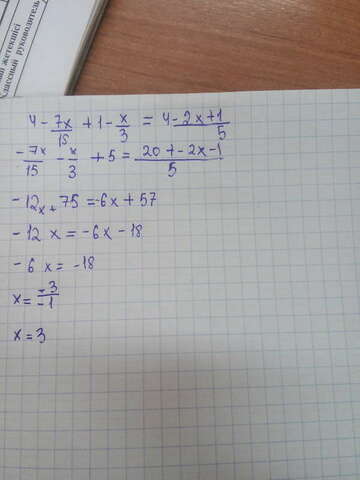 жетекшісі
Классный руководитель
4 - 7x/15 + 1 - x/3 = 4 - 2x+1/5
-7x/15 - x/3 + 5 = 20+-2x-1/5
-12x + 75 = -6x + 57
-12x = -6x - 18
-6x = -18
x = -3/-1
x = 3